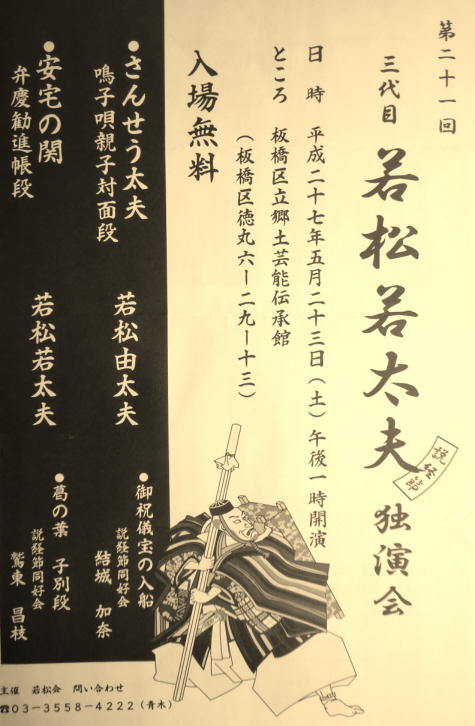 第二十一回
三代目 若松若太夫 独演会
説経節
日時 平成二十七年五月二十三日(土)午後一時開演
ところ 板橋区立郷土芸能伝承館
(板橋区徳丸六ー二九ー十三)
入場無料
●さんせう太夫
鳴子唄親子対面段
若松由太夫
●安宅の関
弁慶勧進帳段
若松若太夫
●御祝儀宝の入船
説経節同好会
結城 加奈
●葛の葉 子別段
説経節同好会
鷲東 昌枝
主催 若松会 問い合わせ
☎03-3558-4222(青木)